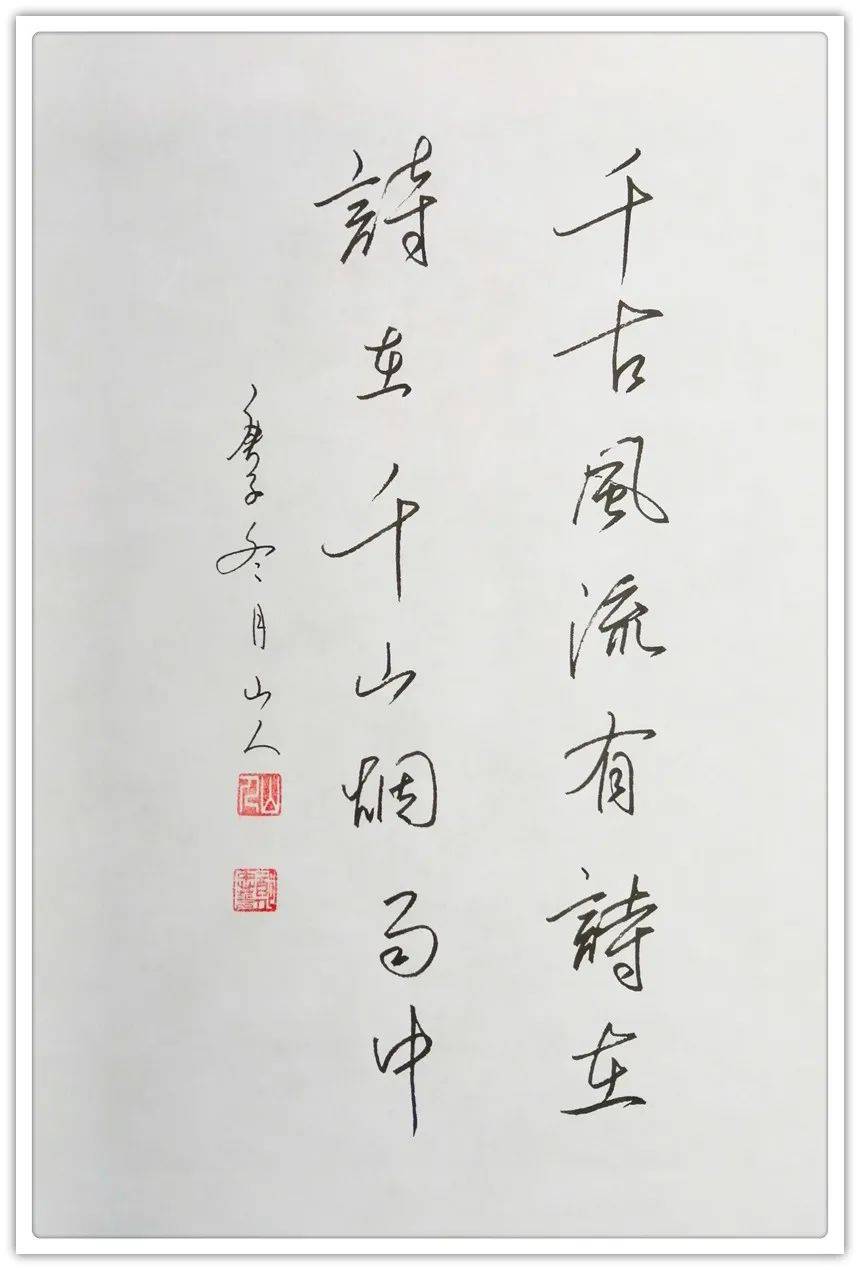 千古風流有詩在
詩在千山烟雨中
庚子冬月山人
山人